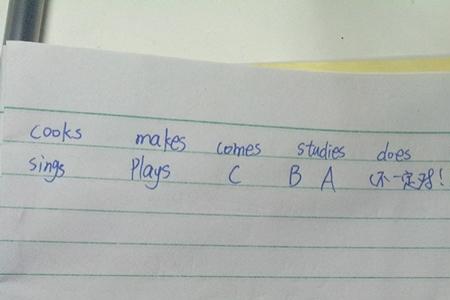 cooks makes comes studies does
sings Plays C B A (不一定对!